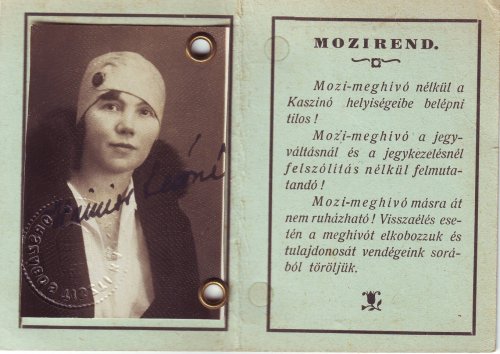 MOZIREND.
Mozi-meghivó nélkül a
Kaszinó helyiségeibe belépni
tilos!
Mozi-meghivó a jegy-
váltásnál és a jegykezelésnél
felszólitás nélkül felmuta-
tandó!
Mozi-meghivó másra át
nem ruházható! Visszaélés ese-
tén a meghivót elkobozzuk és
tulajdonosát vendégeink sorá-
ból töröljük.